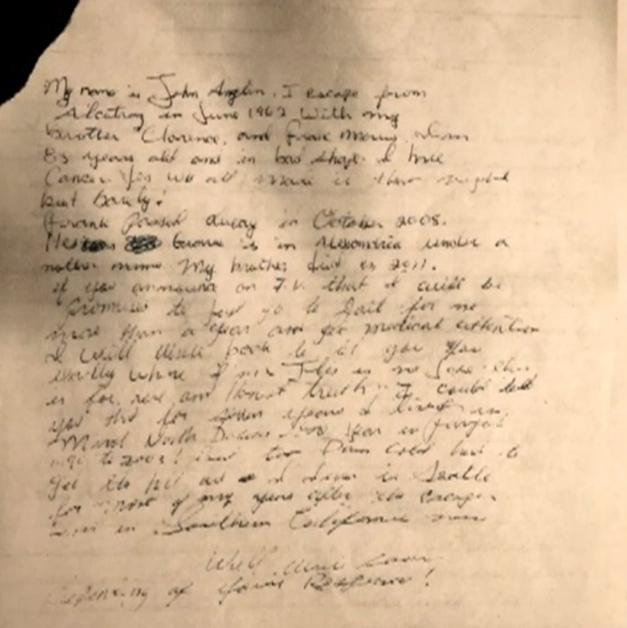 My name is John Anglin. I escape from
Alcatraz in June 1962 With my
brother Clarence, and Frank Morris I'm
83 years old and in bad shape. I have
Cancer. Yes we all made it that night
but barely!
Frank passed away in October 2008.
His grave is in Alexandria under a
nother name. My brother died in 2011.
if you announce on T.V. that I will be
promised to first go to Jail for no
more than a year and get medical attention
I will write back to let you
exactly where I am This is no Joke this
is for real and honest truth. I could tell
you that for seven years I lived in
Minot North Dakota and year in Fargo
to 2003!
for most of my years after the escape.
in Southern California now
Response!